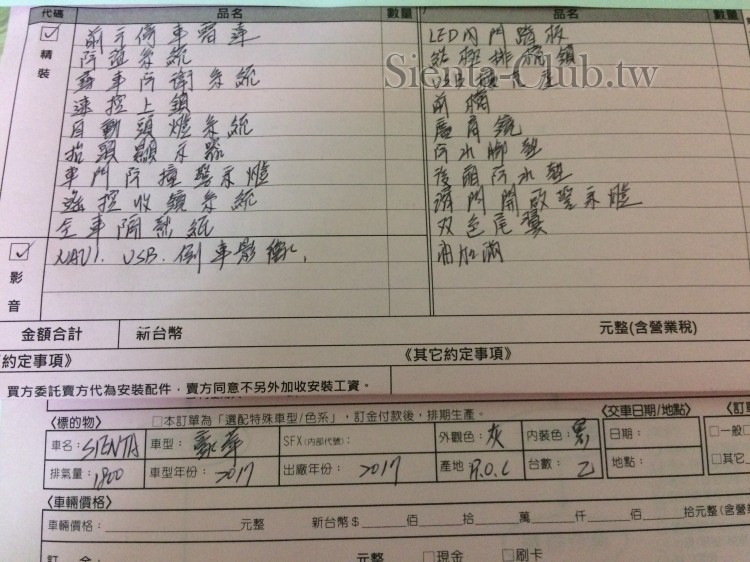 代碼 品名 數量 品名 數量
精裝
防盜系統
速控上鎖
自動頭燈系統
抬頭顯示器
車門防撞警示燈
遙控收鏡系統
全車隔熱紙
LED內門踏板
Sienta-Club.tw
廣角鏡
防水腳墊
後廂防水墊
滑門開啟警示燈
双色尾翼
油加滿
影音
NAVI. USB. 倒車影像.
金額合計 新台幣 元整(含營業稅)
約定事項》 《其它約定事項》
買方委託賣方代為安裝配件，賣方同意不另外加收安裝工資。
〈標的物〉 □本訂單為「選配特殊車型/色系」，訂金付款後，排期生產。 〈交車日期/地點〉 〈訂
車名：SIENTA 車型：豪華 SFX(內部代號)： 外觀色：灰 內裝色：黑 日期： □一般
排氣量：1800 車型年份：2017 出廠年份：2017 產地：R.O.C 台數：乙 地點： □其它
〈車輛價格〉
車輛價格：元整 新台幣$ 佰 拾 萬 仟 佰 拾元整(含營
訂 金： 元整 □現金 □刷卡